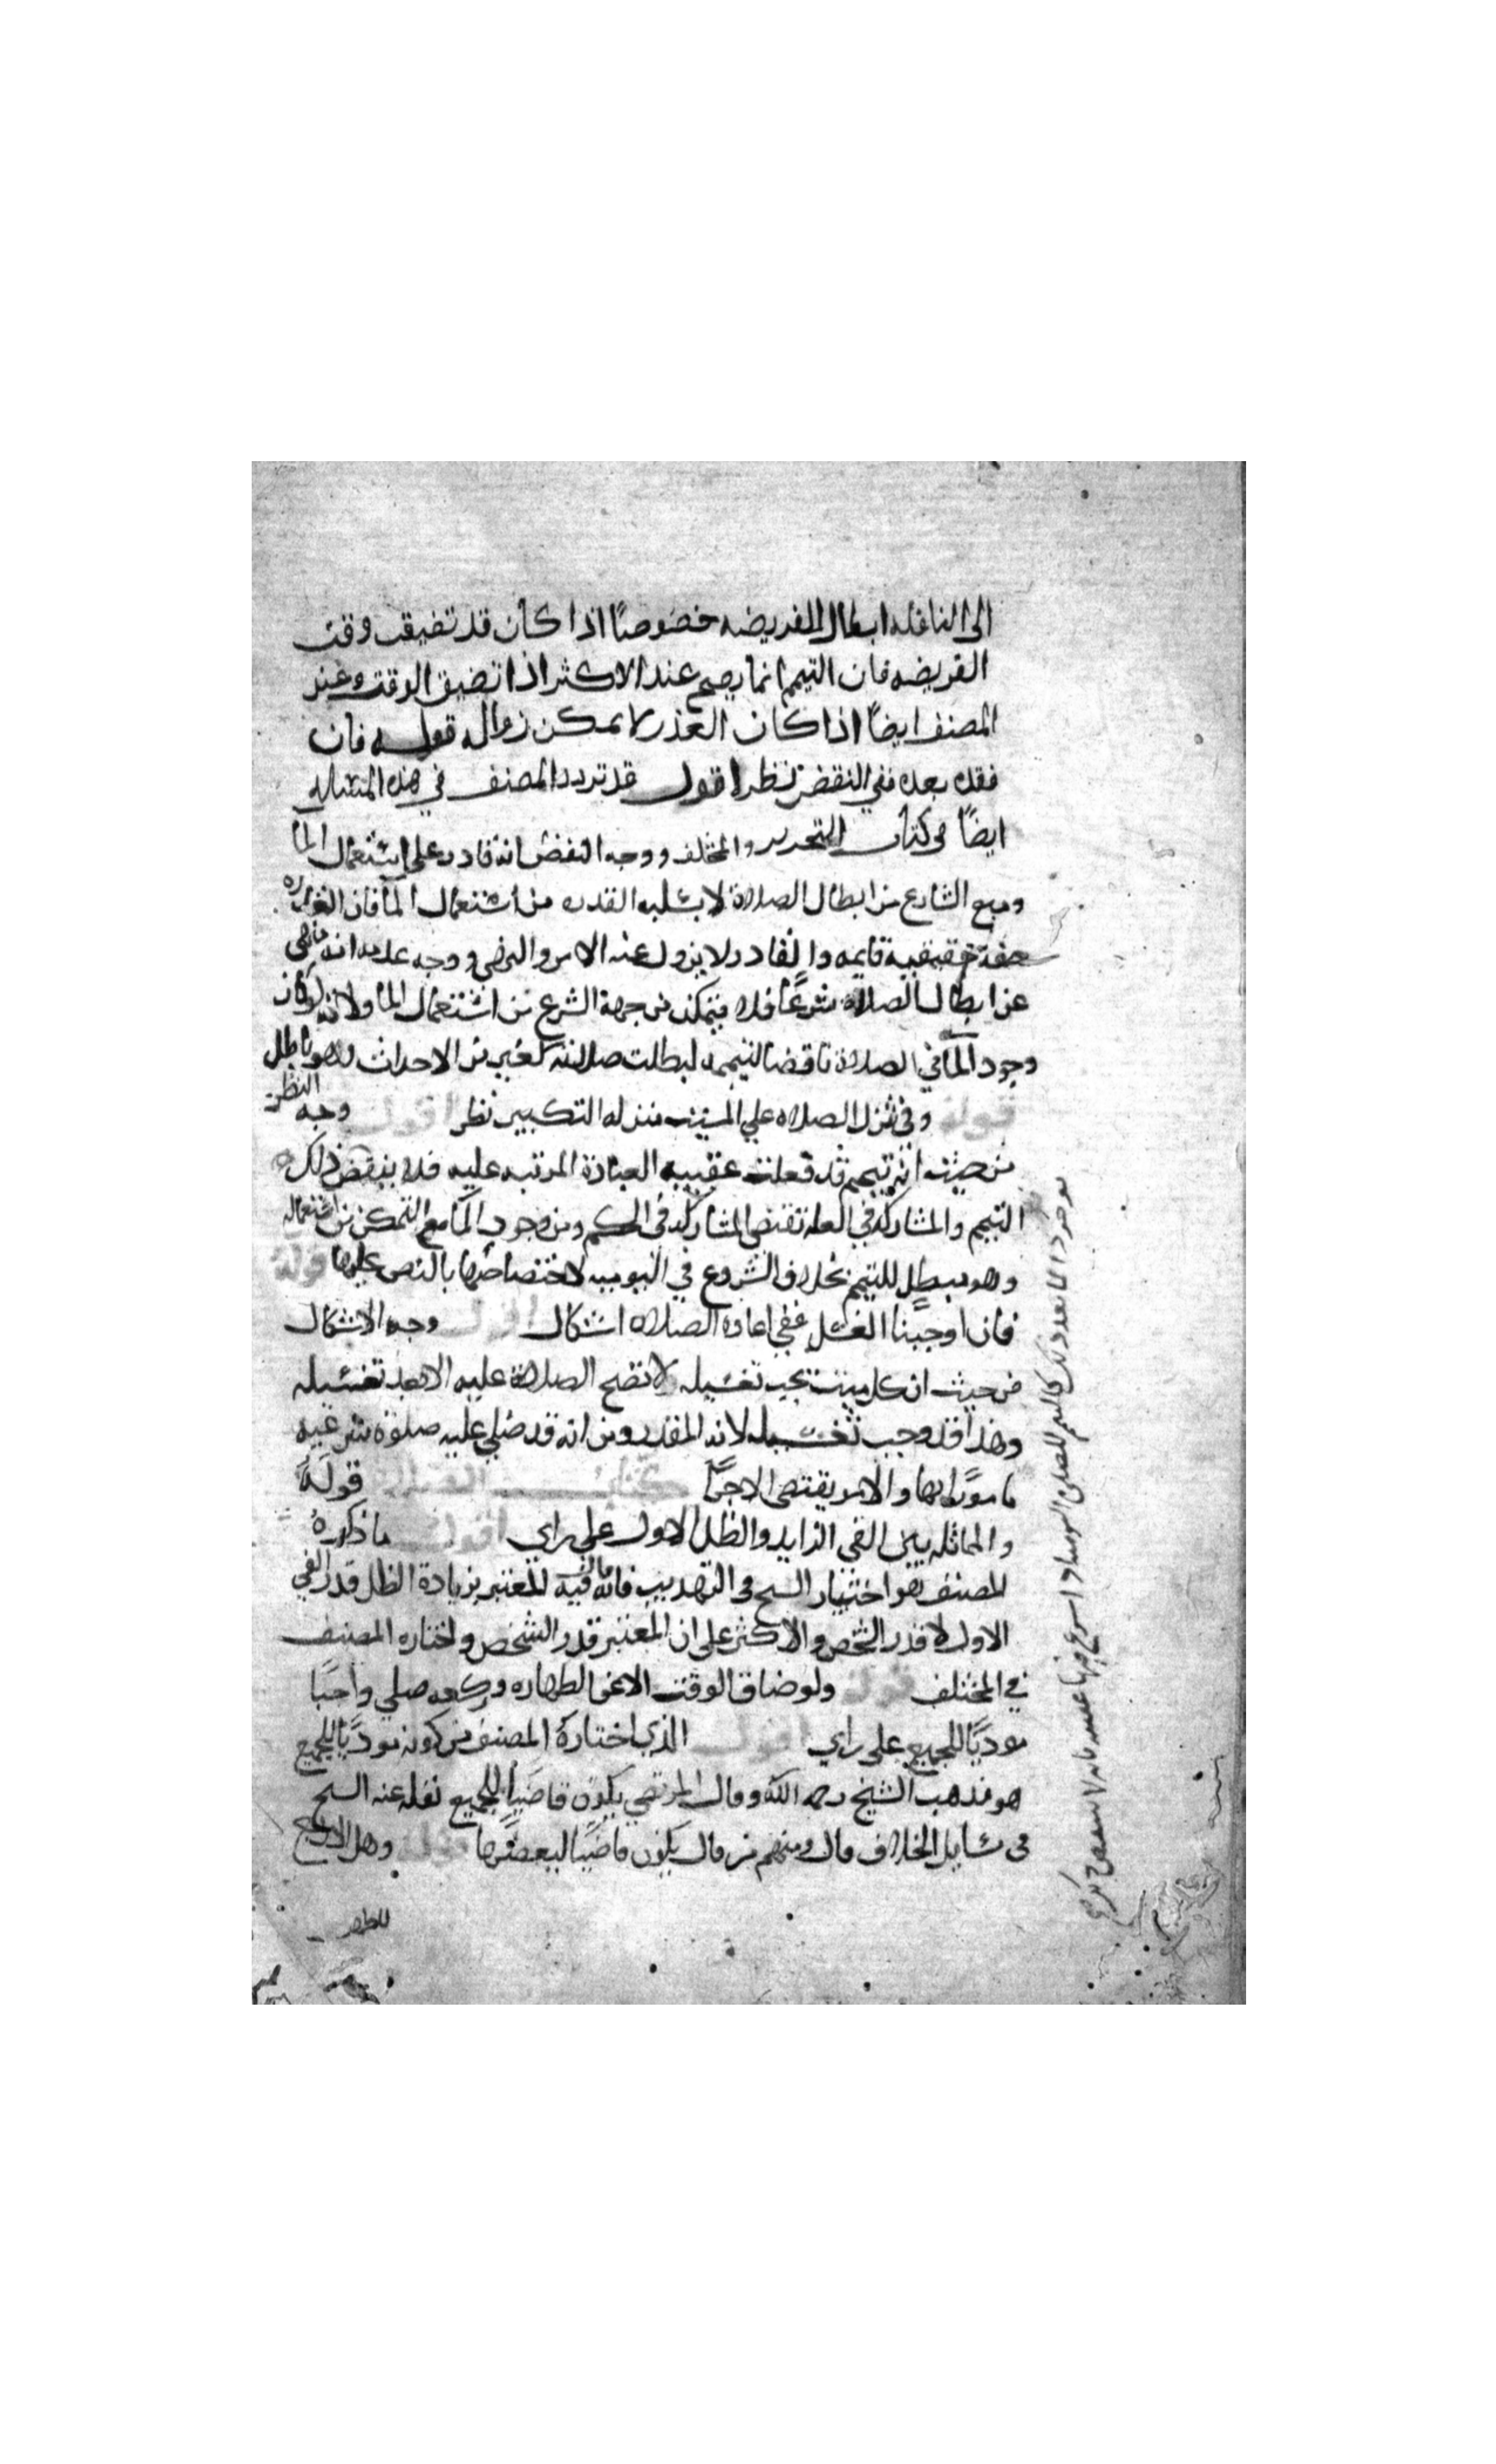 الى النافله ابطال الفريضه خصوصًا اذا كان قد تضيقت وقت
الفريضه فان التيمم انما يصح عند الاكثر اذا تضيق الوقت وعند
المصنف ايضًا اذا كان العذر لا يمكن زواله قوله فان
فقده بعده ففي النقض نظر اقول قد تردد المصنف في هذه المسئاله
ايضًا في كتاب التحرير والمختلف ووجه النقض انه قادر على استعمال الما
ومنع الشارع من ابطال الصلاة لا يسلبه القدره من استعمال الما فان القدره
صفة حقيقية قايمه والقادر لا يزول عنه الامر والنهى ووجه عدمه انه نهى
عن ابطال الصلاة شرعًا فلا يتمكن من جهة الشرع من استعمال الما ولانه لو كان
وجود الما في الصلاة ناقضا لتيممه لبطلت صلاته كغيره من الاحداث وهو باطل
قوله وفي تنزل الصلاه علي الميت منزله التكبير نظر اقول وجه النظر
من حيث انه تيمم قد فعلت عقيبه العبادة المرتبه عليه فلا ينقض ذلك
التيمم والمشاركه في العله تقتضى المشاركه في الحكم ومن وجود الما مع التمكن من استعماله
وهو مبطل للتيمم بخلاف الشروع في اليوميه لاختصاصها بالنص عليها قوله
فان اوجبنا الغسل ففي اعادة الصلاه اشكال اقول وجه الاشكال
من حيث ان كل ميت يجب تغسيله لا تصح الصلاة عليه الا بعد تغسيله
وهذا قد وجب تغسيله لانه المقدر ومن انه قد صلي عليه صلوة شرعيه
مامورًا بها والامر يقتضى الاجزا كتاب الصلاة قوله
والمماثله بين الفي الزايد والظل الاول على راي اقول ما ذكره
المصنف هو اختيار الشيخ في التهذيب فانه قال فيه المعتبر بزيادة الظل قدر الفي
الاول لا قدر الشخص والاكثر على ان المعتبر قدر الشخص واختاره المصنف
في المختلف قوله ولو ضاق الوقت الا عن الطهاره وركعه صلي واجبًا
موديًا للجميع على راي اقول الذي اختاره المصنف من كونه موديًا للجميع
هو مذهب الشيخ رحمه الله وقال المرتضي يكون قاضيًا للجميع نقله عنه الشيخ
في مسايل الخلاف قال ومنهم من قال يكون قاضيًا لبعضها قوله وهل الارجح
للطهر